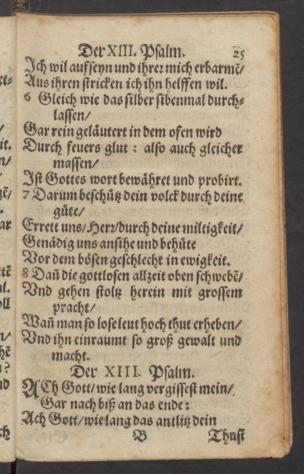 Der XIII. Psalm. 25
Ich wil auffseyn und ihrer mich erbarmē/
Aus ihren stricken ich ihn helffen wil.
6 Gleich wie das silber sibenmal durch-
lassen/
Gar rein geläutert in dem ofen wird
Durch feuers glut : also auch gleicher
massen/
Ist Gottes wort bewähret und probirt.
7 Darum beschütz dein volck durch deine
güte/
Errett uns/Herr/durch deine miltigkeit/
Genädig uns ansihe und behüte
Vor dem bösen geschlecht in ewigkeit.
8 Dañ die gottlosen allzeit oben schwebē/
Vnd gehen stoltz herein mit grossem
pracht/
Wañ man so lose leut hoch thut erheben/
Vnd ihn einraumt so groß gewalt und
macht.
Der XIII. Psalm.
ACh Gott/wie lang vergissest mein/
Gar nach biß an das ende:
Ach Gott/wie lang das antlitz dein
B Thust